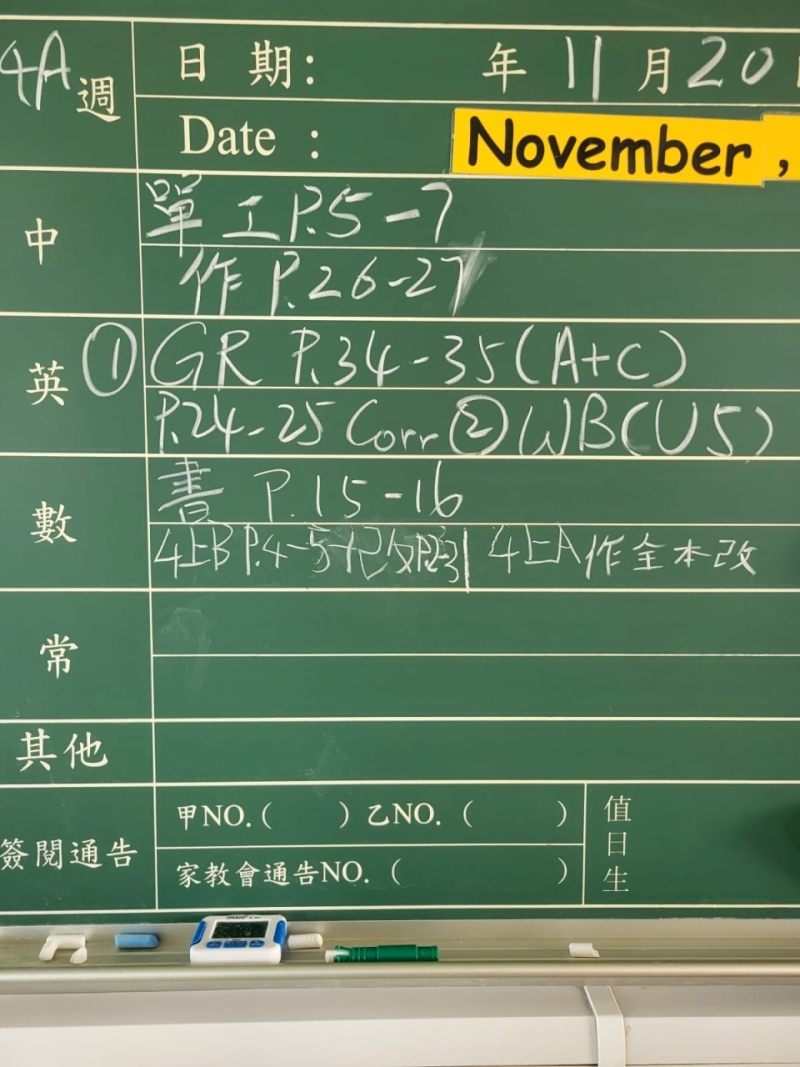 4A週
日 期: 年 11 月 20
Date : November,
中
單 工 P.5-7
作 P.26-27
英 ① GR P.34-35(A+C)
P.24-25 Corr ② WB(U5)
數
書 P.15-16
4上B P.4-5 4上A作全本改
常
其他
簽閱通告
甲NO.( ) 乙NO. ( )
家教會通告NO. ( )
值日生